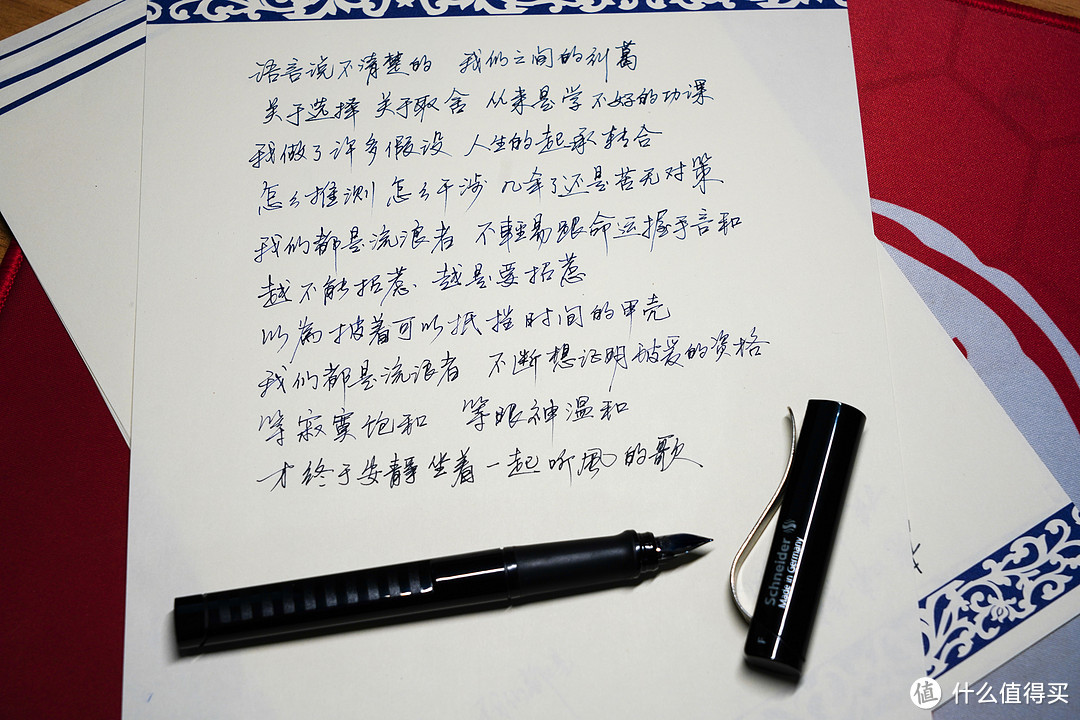 语言说不清楚的 我们之间的纠葛
关于选择 关于取舍 从来是学不好的功课
我做了许多假设 人生的起承转合
怎么推测 怎么干涉 几年了还是苦无对策
我们都是流浪者 不輕易跟命运握手言和
越不能招惹、越是要招惹
以為披着可以抵挡时间的甲壳
我们都是流浪者 不断想证明被爱的资格
等寂寞饱和 等眼神温和
才终于安静坐着一起听風的歌
Schneider
Made in Germany
值 什么值得买